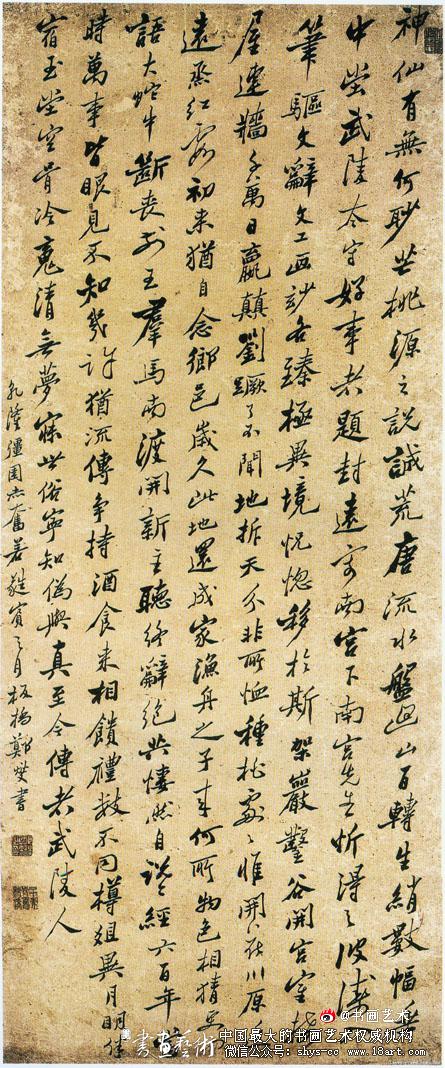 神仙有無何眇茫桃源之說誠荒唐流水盤迴山百轉生綃數幅垂
中堂武陵太守好事者題封遠寄南宮下南宮先生忻得之波濤入
筆驅文辭文工畫妙各臻極異境恍惚移於斯架巖鑿谷開宮室接
屋連牆千萬日嬴顛劉蹶了不聞地坼天分非所恤種桃處々惟開花川原近
遠烝紅霞初來猶自念鄉邑歲久此地還成家漁舟之子來何所物色相猜更問
語大蛇中斷喪前王羣馬南渡開新主聽終辭絕共悽然自說經六百年當
時萬事皆眼見不知幾許猶流傳爭持酒食來相饋禮數不同樽俎異月明伴
宿玉堂空骨冷魂清無夢寐世俗寧知偽與真至今傳者武陵人
乾隆彊圉赤奮若蕤賓之月板橋鄭燮書
@书画艺术
書畫藝術
中国最大的书画艺术权威机构
微信公众号：shys-cc www.18art.com